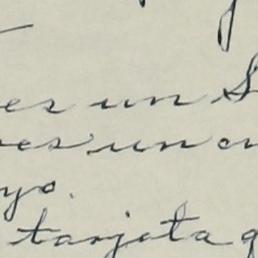 es un S
es un
yo.
tarjeta q